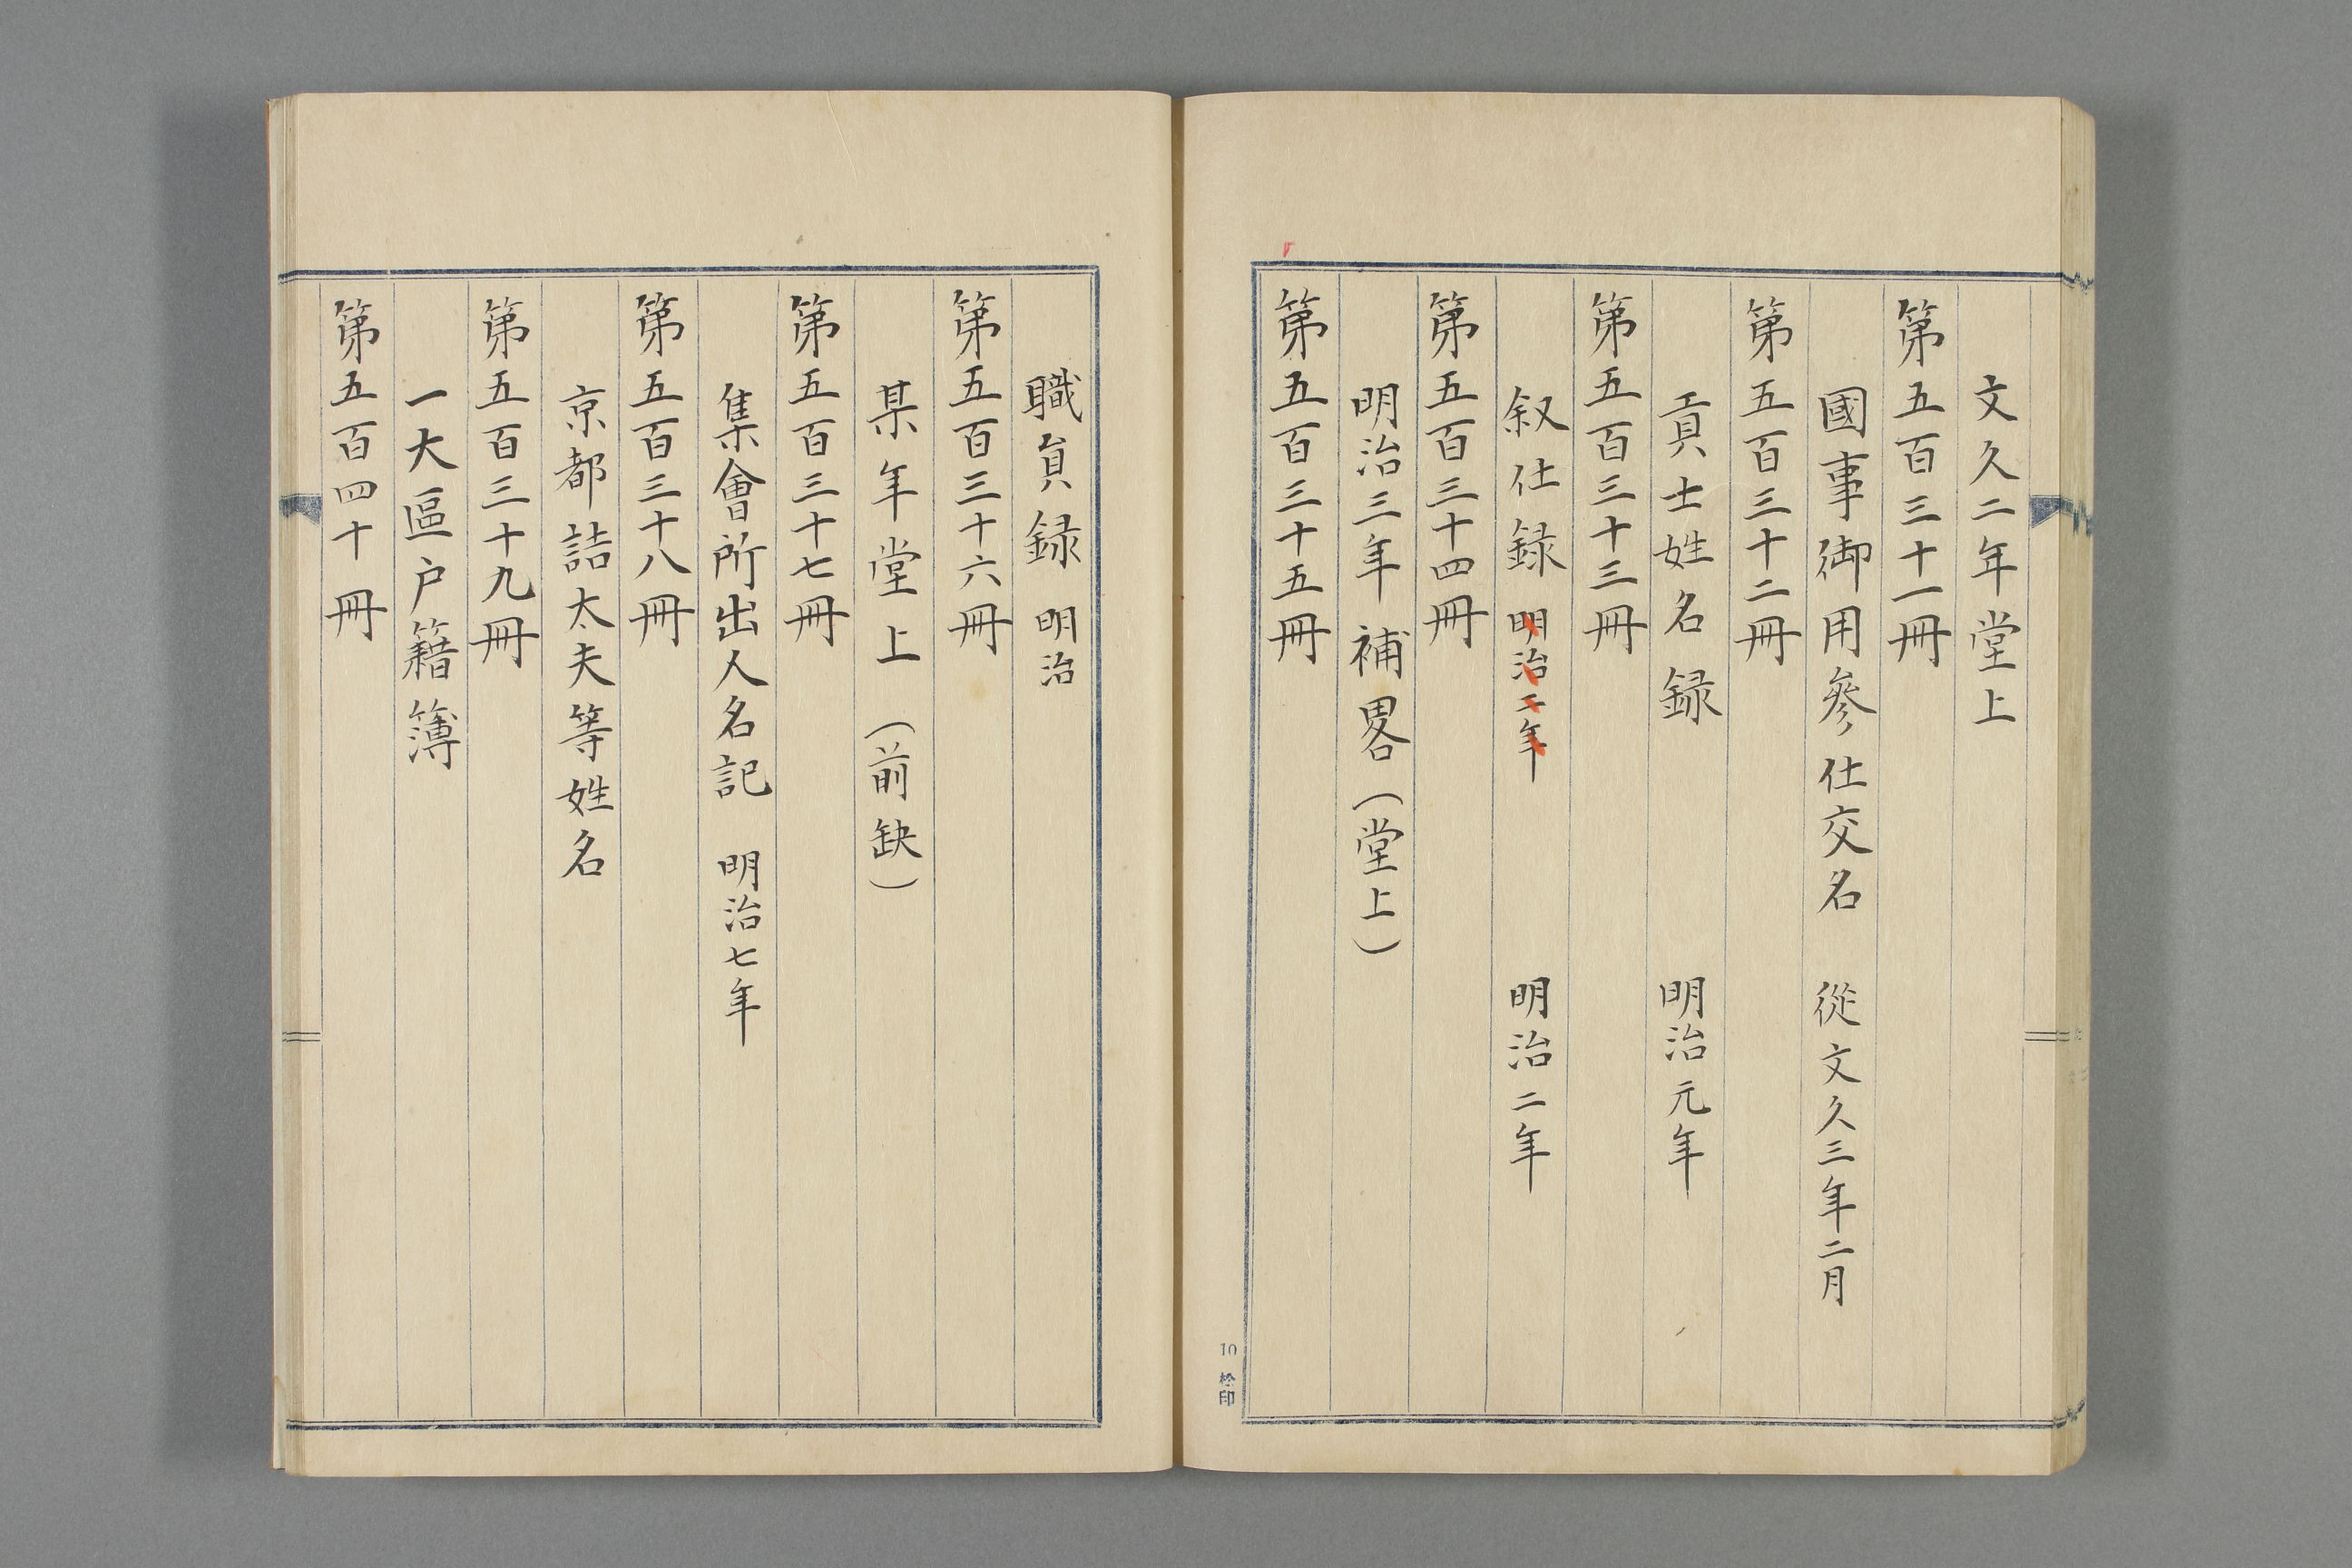 文久二年堂上
第五百三十一冊
國事御用參仕交名　從文久三年二月
第五百三十二冊
貢士姓名録　明治元年
第五百三十三冊
叙仕録　明治二年　明治二年
第五百三十四冊
明治三年補畧（堂上）
第五百三十五冊
10 松印
職員録　明治
第五百三十六冊
某年堂上（前缺）
第五百三十七冊
集會所出人名記　明治七年
第五百三十八冊
京都詰太夫等姓名
第五百三十九冊
一大區戸籍簿
第五百四十冊